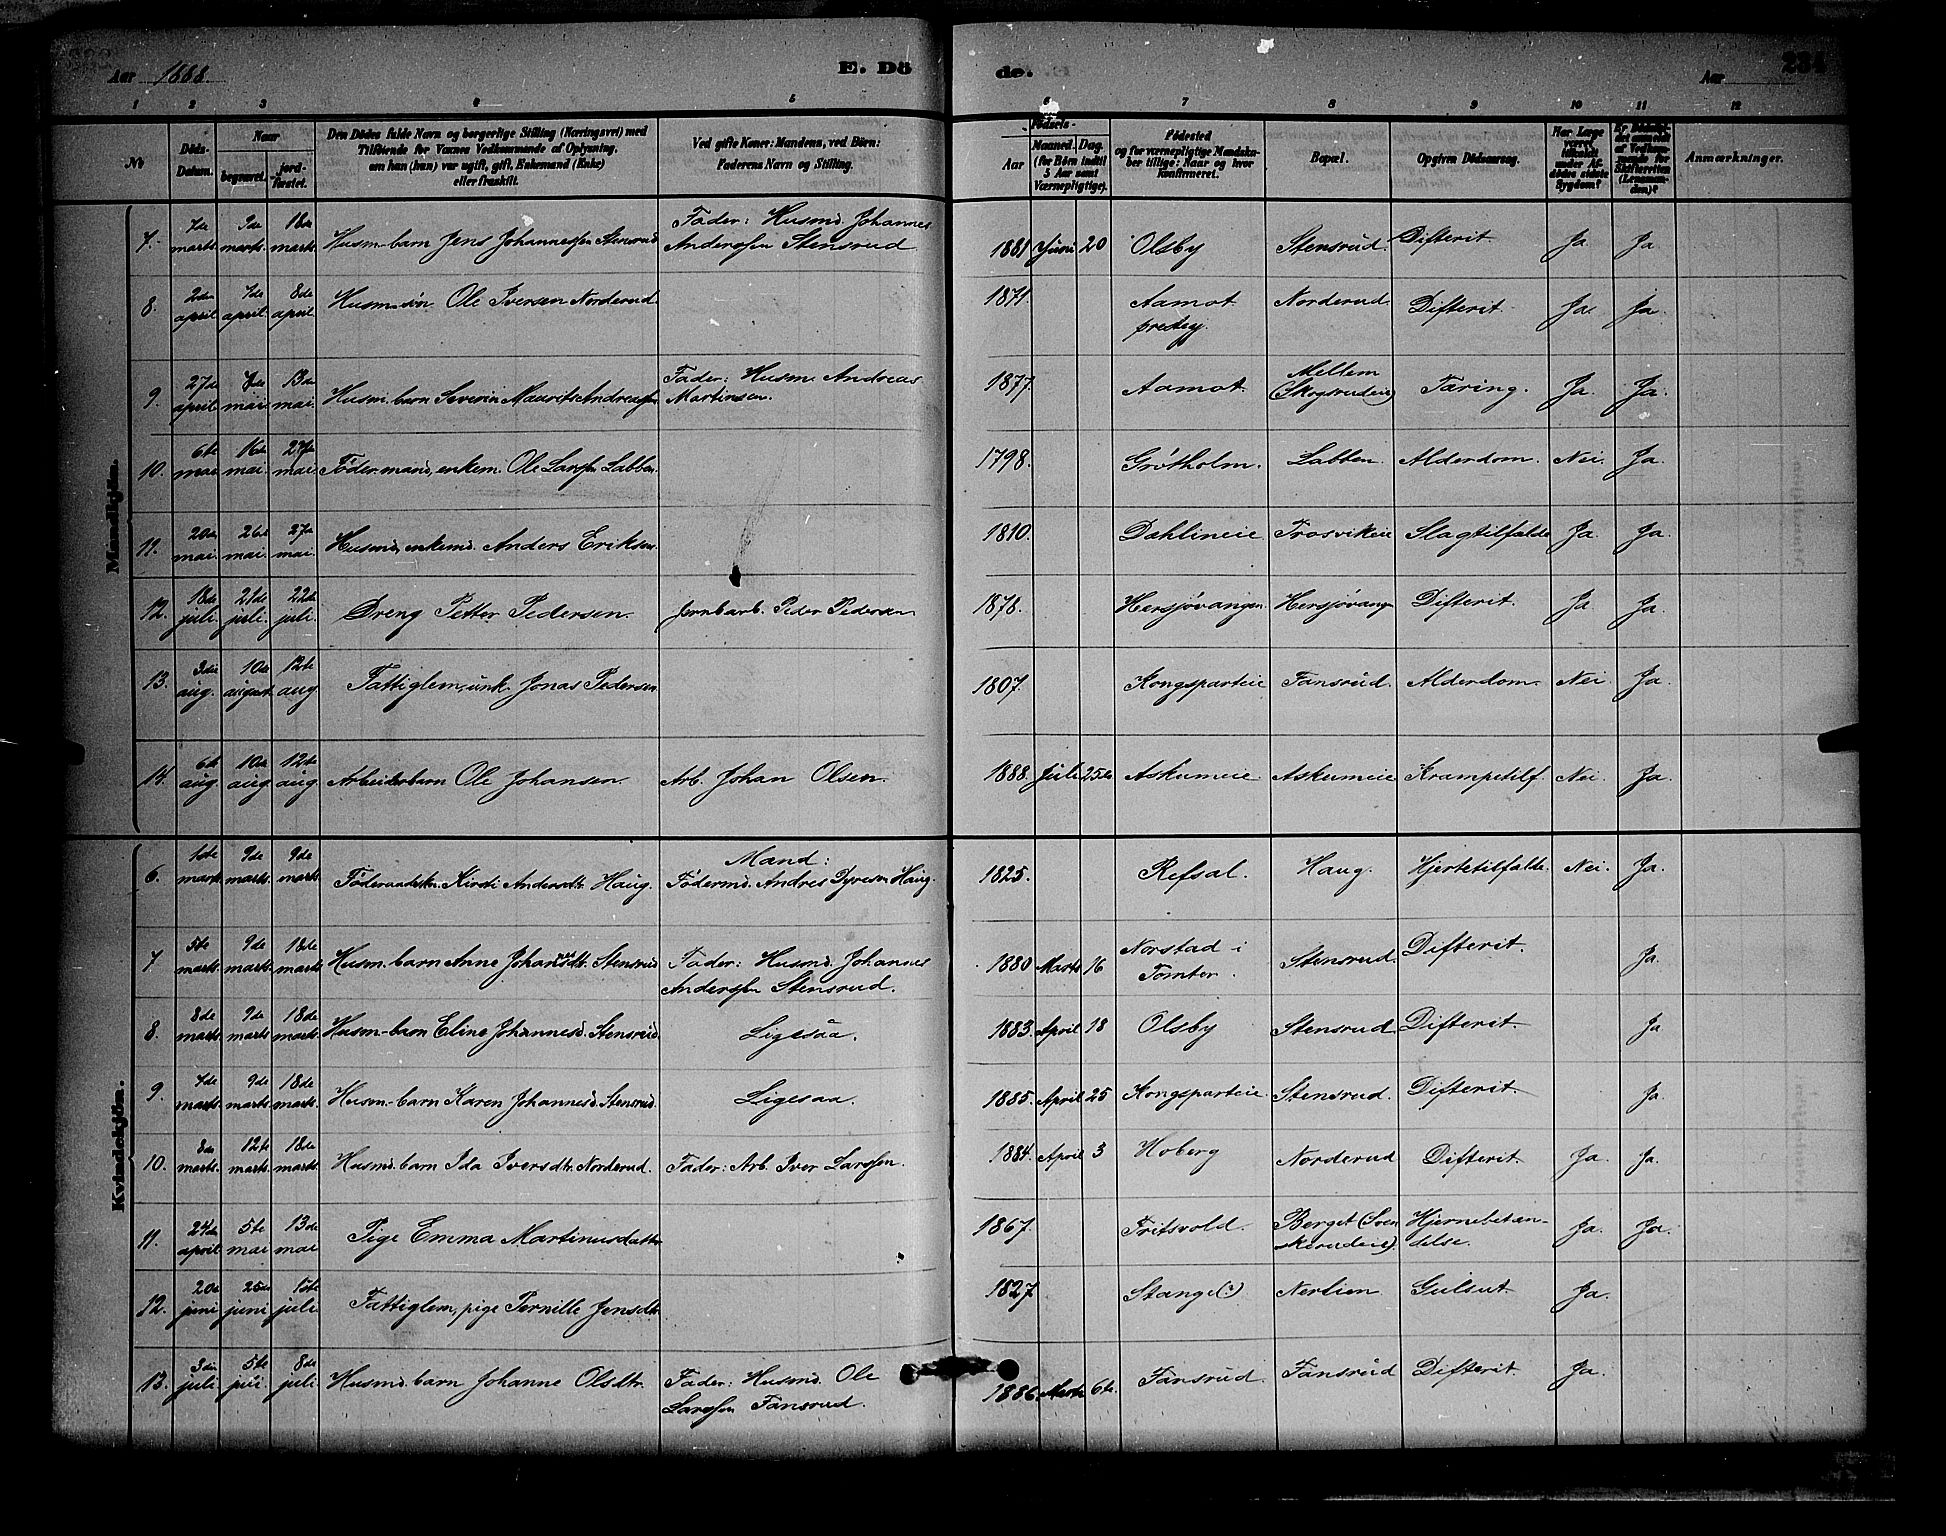 Aar 1888. E. Dö de. Aar 234
1 2 3 4 5 6 7 8 9 10 11 12
No
Döds-Datum.
Naar
begravet. jord-fæstet.
Den Dödes fulde Navn og borgerlige Stilling (Næringsvei) med
Tilföiende for Voxnes Vedkommende af Oplysning,
om han (hun) var ugift, gift, Enkemand (Enke)
eller fraskilt.
Ved gifte Koner: Mandens, ved Börn:
Faderens Navn og Stilling.
Födsels-
Aar
Maaned. (for Börn indtil 5 Aar samt Værnepligtige).
Dag.
Födested
og for værnepligtige Mandska-
ber tillige: Naar og hvor
konfirmeret.
Bopæl.
Opgiven Dödsaarsag.
Har Læge været tilkaldt under Afdödes sidste Sygdom?
Er Dödsfaldet anmeldt af Vedkommende for Skifteretten (Lensmanden)?
Anmærkninger.
Mandkjön.
7. 7de marts. 9de marts. 18de marts. Husm. barn Jens Johannessen Stensrud Fader: Husmd. Johannes Anderssen Stensrud 1881 Juni 20 Olsby Stensrud. Difterit. Ja Ja.
8. 2den april 7de april 8de april. Husm. sön Ole Iversen Norderud 1871. Aamot prestegj. Norderud Difterit. Ja. Ja.
9. 27de april. 8de mai. 13de mai. Husm. barn Severin Maurits Andreassen Fader: Husm. Andreas Martinsen. 1877. Aamot. Mellem (Skogsrudeie) Tæring. Ja. Ja.
10. 6te mai 16de mai. 27de mai. Födermand, enkem. Ole Larssen Labben. 1798. Grötholm. Labben. Alderdom. Nei. Ja.
11. 20de mai 26de mai. 27de mai. Husmd, enkemd. Anders Eriksen. 1810. Dæhlineie Trosvikeie Slagtilfælde Ja. Ja.
12. 18de juli 21de juli. 22de juli. Dreng Petter Pedersen. Jernbarb. Peder Pedersen 1878. Hersjövangen Hersjövangen Difterit. Ja Ja.
13. 3die aug. 10de august. 12te aug. Fattiglem, unk. Jonas Pedersen 1807. Kongsparteie Fansrud. Alderdom. Nei Ja.
14. 6te aug. 10de aug. 12te aug. Arbeiderbarn Ole Johansen. Arb. Johan Olsen. 1888. Juli 25de Askumeie Askumeie Krampetilf. Nei. Ja.
Kvindekjön.
6. 1ste marts. 9de marts. 9de marts. Föderaadskn. Kirsti Andersdtr. Haug. Mand: Födermd. Andres Dyresen Haug. 1825. Refsal. Haug. Hjertetilfælde. Nei. Ja.
7 5te marts. 9de marts. 18de marts. Husm. barn Anne Johannesdtr. Stensrud Fader: Husmd. Johannes Anderssen Stensrud. 1880 Marts 16 Norstad i Tomter. Stensrud. Difterit. Ja.
8. 8de marts. 9de marts. 18de marts. Husm-barn Eline Johannesd. Stensrud. Ligesaa. 1883. April 18 Olsby Stensrud Difterit. Ja
9. 7de marts. 9de marts. 18de marts. Husm-barn Karen Johannesd. Stensrud. Ligesaa. 1885. April 25 Kongsparteie Stensrud. Difterit. Ja.
10. 8de marts. 12te marts. 18de marts. Husmd. barn Ida Iversdtr. Norderud. Fader: Arb. Iver Larssen. 1884. April 3 Hoberg Norderud Difterit. Ja. Ja.
11. 24de april 5te mai 13de mai Pige Emma Martinusdatter 1867. Fritsvold. Berget (Svenskerudeie) Hjernebetændelse. Ja. Ja.
12. 20de juni 25de juni 15te juli Fattiglem, pige Pernille Jensdtr. 1827. Stange(?) Nerlien Gulsut. Ja.
13. 3die juli 5te juli 8de juli. Husmd. barn Johanne Olsdtr. Fader: Husmd. Ole Larssen Fansrud. 1886 Marts 6te. Fansrud. Fansrud Difterit. Ja.